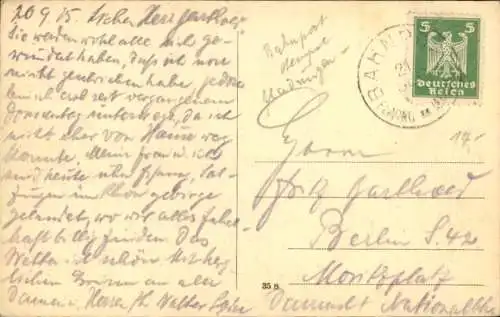 20 9. 25. Lieber Herr Gasthold
Sie werden wohl alle sich ge-
wundert haben, daß ich noch
nicht geschrieben habe, jedoch
bin ich erst seit vergangenem
Donnerstag unterwegs, da ich
nicht eher von Hause weg
konnte. Meine Frau u. ich
sind heute über
im Rhöngebirge
gelandet, wo wir alles fabel-
haft billig finden. Das
Wetter ist schön. Mit herz-
lichen Grüßen an alle
Damen u. Herren Ihr Walter
Bahnpost
Stempel
Meiningen
BAHNP
5 5
Deutsches
Reich
17.-
Herrn
Fritz
Berlin S. 42
Moritzplatz
Darmst. Nationalbk
35 B